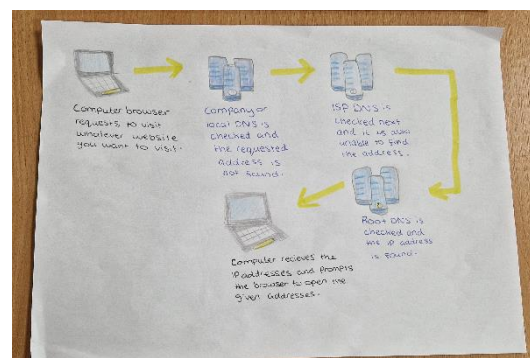 Computer browser
requests to visit
whatever website
you want to visit.
Company or
local DNS is
checked and
the requested
address is
not found.
ISP DNS is
checked next
and it is also
unable to find
the address.
Root DNS is
checked and
the IP address
is found.
Computer recieves the
IP addresses and prompts
the browser to open the
given addresses.